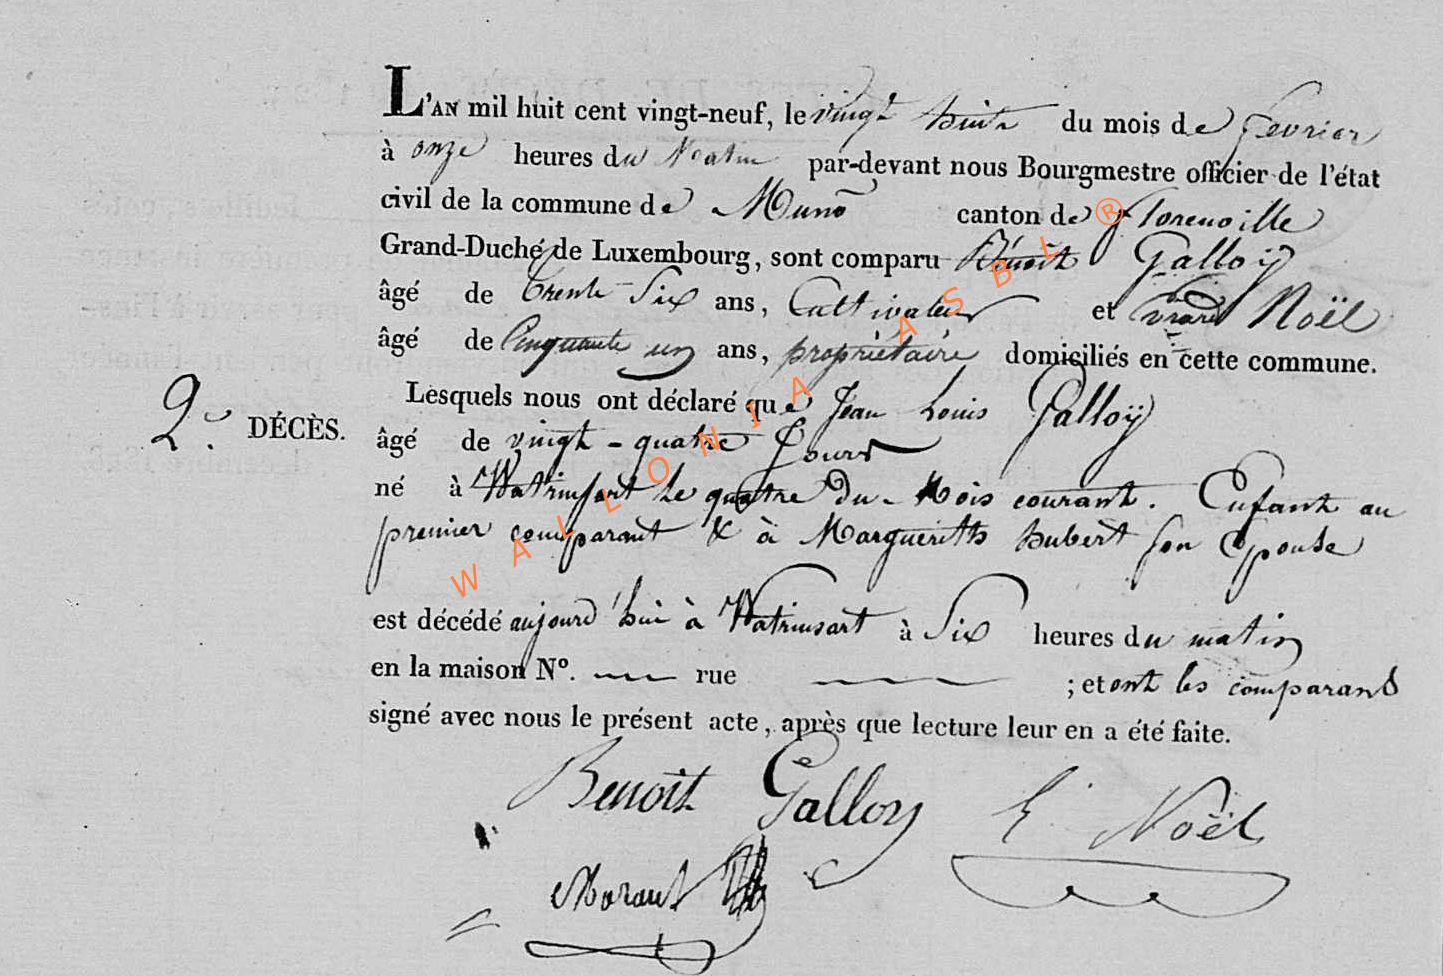 L'AN mil huit cent vingt-neuf, le vingt huit du mois de fevrier
à onze heures du Matin par-devant nous Bourgmestre officier de l'état
civil de la commune de Muno canton de florenville
Grand-Duché de Luxembourg, sont comparu Benoit Galloÿ
âgé de trente Six ans, Cultivateur et Noël
âgé de Cinquante un ans, propriétaire domiciliés en cette commune.
Lesquels nous ont déclaré que Jean Louis Galloÿ
2e DÉCÈS.
âgé de vingt-quatre Jours
né à Watrinsart le quatre du Mois courant. Enfant au
premier comparant & à Margueritte hubert son Epouse
est décédé aujourd'hui à Watrinsart à Six heures du matin
en la maison N°. rue ; et ont les comparans
signé avec nous le présent acte, après que lecture leur en a été faite.
Benoît Galloy Noël
WALLONIA ASBL ®